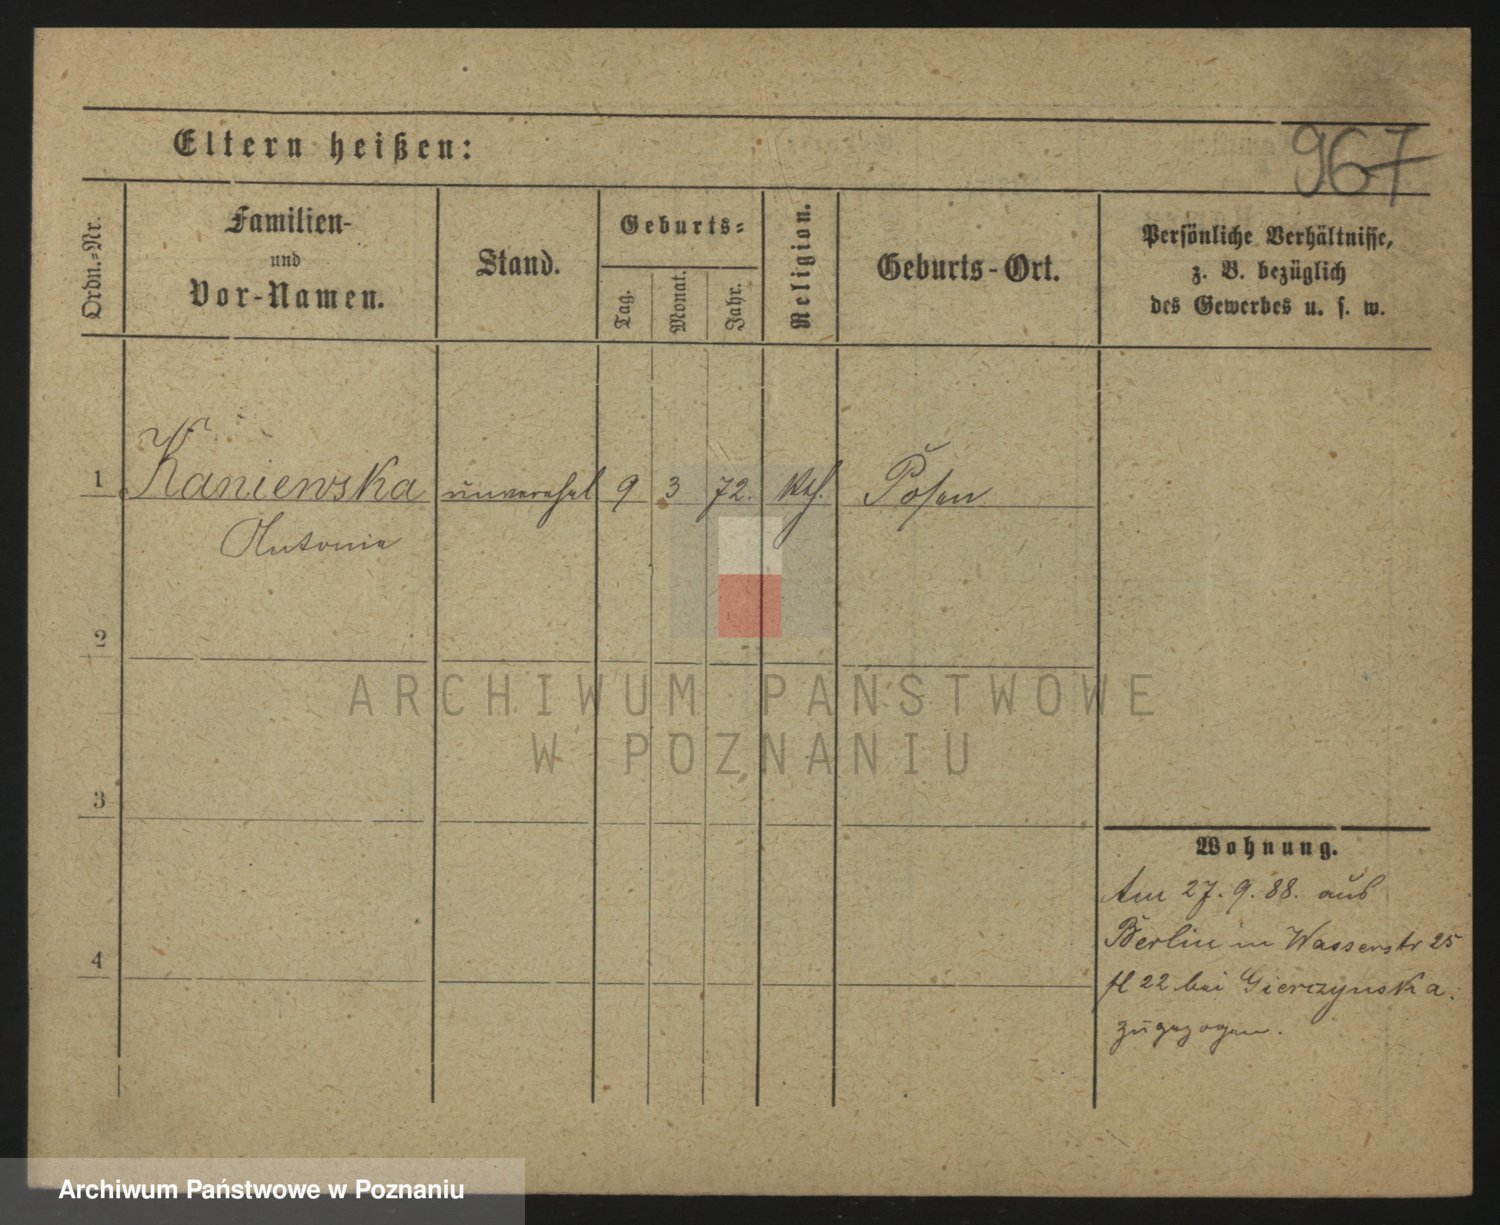 967
Eltern heißen:
Ordn.-Nr.
Familien-
und
Vor-Namen.
Stand.
Geburts-
Tag.
Monat.
Jahr.
Religion.
Geburts-Ort.
Persönliche Verhältnisse,
z. B. bezüglich
des Gewerbes u. s. w.
1 Kaniewska unverehel 9 3 72. kth. Posen
Antonie
2
3
4
Wohnung.
Am 27. 9. 88. aus
Berlin in Wasserstr 25
fl 22 bei Gierczynska
zugezogen.
ARCHIWUM PAŃSTWOWE
W POZNANIU
Archiwum Państwowe w Poznaniu